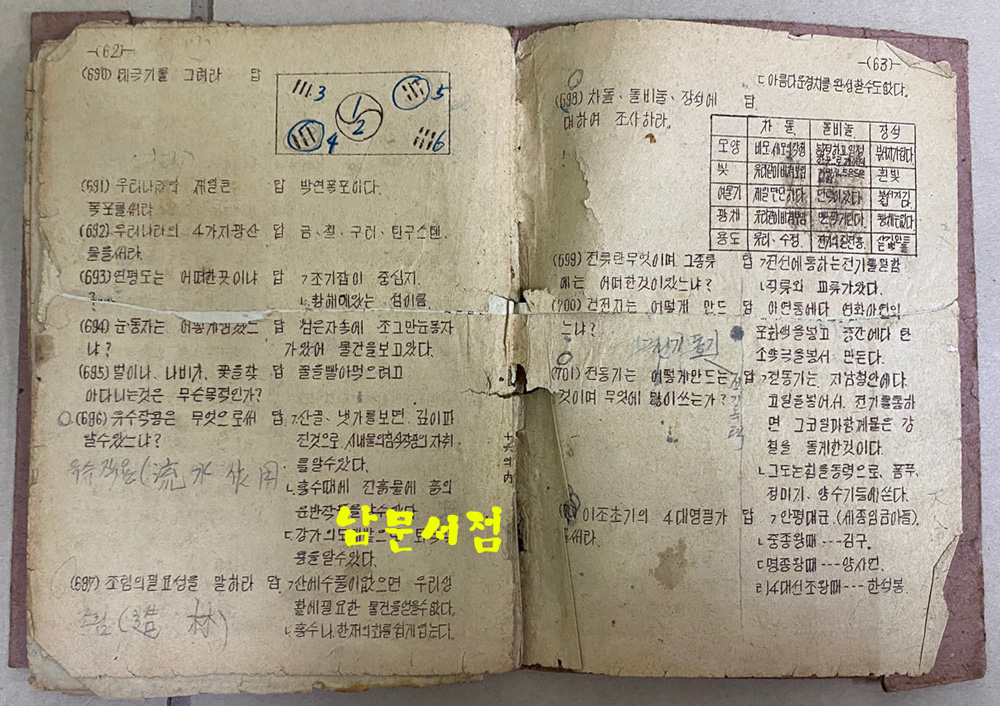 -(62)-
(690) 태극기를 그려라 답
3 5
1
2
4 6
(691) 우리나라의 제일큰 답 박연폭포이다.
폭포를써라
(692) 우리나라의 4가지광산 답 금、철、구리、틴구스텐、
물을써라.
(693) 연평도는 어떠한곳이냐 답 ㄱ조기잡이 중심지.
ㄴ황해에있는 섬이름.
(694) 눈동자는 어떻게생겼느 답 검은자속에 조그만눈동자
냐? 가있어 물건을보고있다.
(695) 벌이나、나비가、꽃을찾 답 꿀을빨아먹으려고
아다니는것은 무슨목적인가?
(696) 유수작용은 무엇으로써 답 ㄱ산골、냇가를보면 깊이파
알수있느냐? 진것으로 시내물의침식작용의 자취
를알수있다.
유수작용(流水作用
ㄴ홍수때에 진흙물에 흙의
운반작용
용을알수있다.
남문서점
(697) 조림의필요성을 말하라 답 ㄱ산에수풀이없으면 우리생
활에필요한 물건을얻을수없다.
조림(造林)
ㄴ홍수나、한재의화를쉽게입는다.
-(63)-
ㄷ아름다운경치를 완성할수도없다.
(698) 차돌、돌비늘、장석에 답
대하여 조사하라。
차돌 돌비늘 장석
모양
빛 흰빛
여물기 제일단단하다.
광채
용도 유리、수정.
(699) 전류란무엇이며 그종류 답 ㄱ전선에통하는전기를말함
에는 어떠한것이있느냐? ㄴ직류와 교류가있다.
(700) 건전지는 어떻게 만드 답 아연통에다 염화아연의
는냐? 포화액을넣고 중간에다 탄
소양극을넣어서 만든다.
(701) 전동기는 어떻게만드는 답 ㄱ전동기는、지남철안에다
것이며 무엇에 많이쓰는가? 코일을넣어서、전기를통하
면 그코일과함께물은 강
철을 돌게한것이다.
ㄴ그도는힘을동력으로、폼푸、
정미기、양수기들에쓴다.
이조초기의 4대명필가 답 ㄱ안평대군.(세종임금아들).
를써라. ㄴ중종왕때---김구.
ㄷ명종왕때---양사언.
ㄹ14대선조왕때---한석봉.